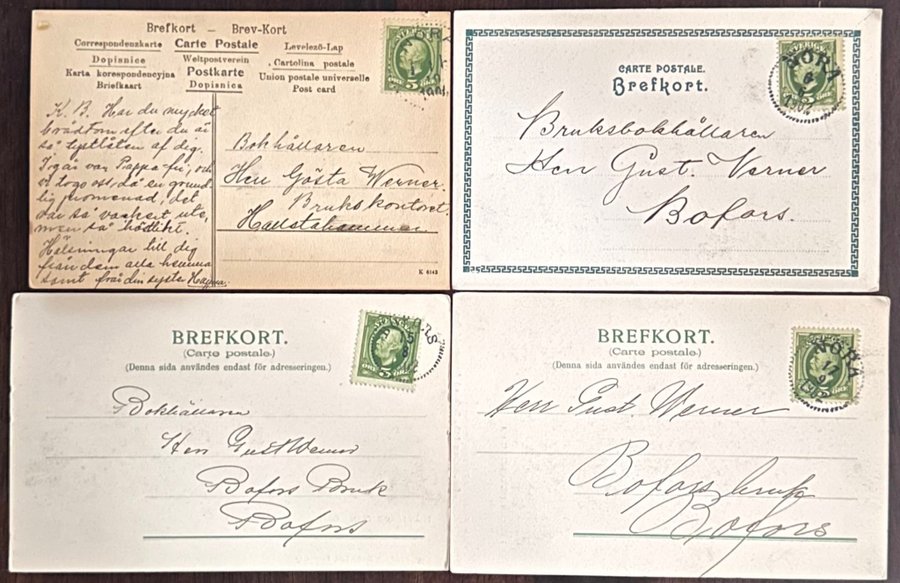 Brefkort — Brev-Kort
Correspondenzkarte Carte Postale Levelező-Lap
Dopisnice Weltpostverein Cartolina postale
Karta korespondencyjna Postkarte Union postale universelle
Briefkaart Dopisnica Post card
K. B. Har du mycket
brådtom efter du är
så tystlåten af dig.
Igår var Pappa fri, och
vi togo oss, då en grund-
lig promenad, det
var så vackert ute,
men så
Hälsningar till dig
från dem alla hemma
samt från din syster
Bokhållaren
Herr Gösta Werner.
Brukskontoret
K 6143
NORA
5 ÖRE 5
CARTE POSTALE.
Brefkort.
NORA
1902
Bruksbokhållaren
Herr Gust. Werner
Bofors.
BREFKORT.
(Carte postale.)
(Denna sida användes endast för adresseringen.)
5 ÖRE
Bokhållaren
Herr Gust Werner
Bofors Bruk
Bofors
BREFKORT.
(Carte postale.)
(Denna sida användes endast för adresseringen.)
NORA
Herr Gust. Werner
Bofors bruk
Bofors